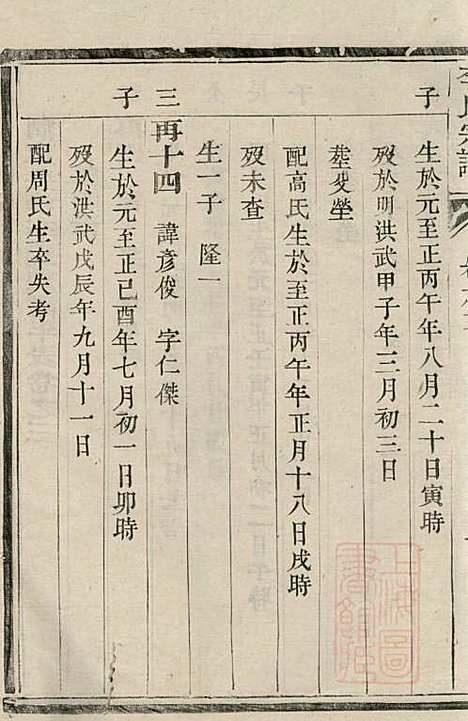 李氏宗譜
子
生於元至正丙午年八月二十日寅時
歿於明洪武甲子年三月初三日
塟
塋
配高氏生於至正丙午年正月十八日戌時
歿未查
生一子 隆一
三子
再十四 諱彥俊 字仁傑
生於元至正己酉年七月初一日卯時
歿於洪武戊辰年九月十一日
配周氏生卒失考
上海圖書館藏